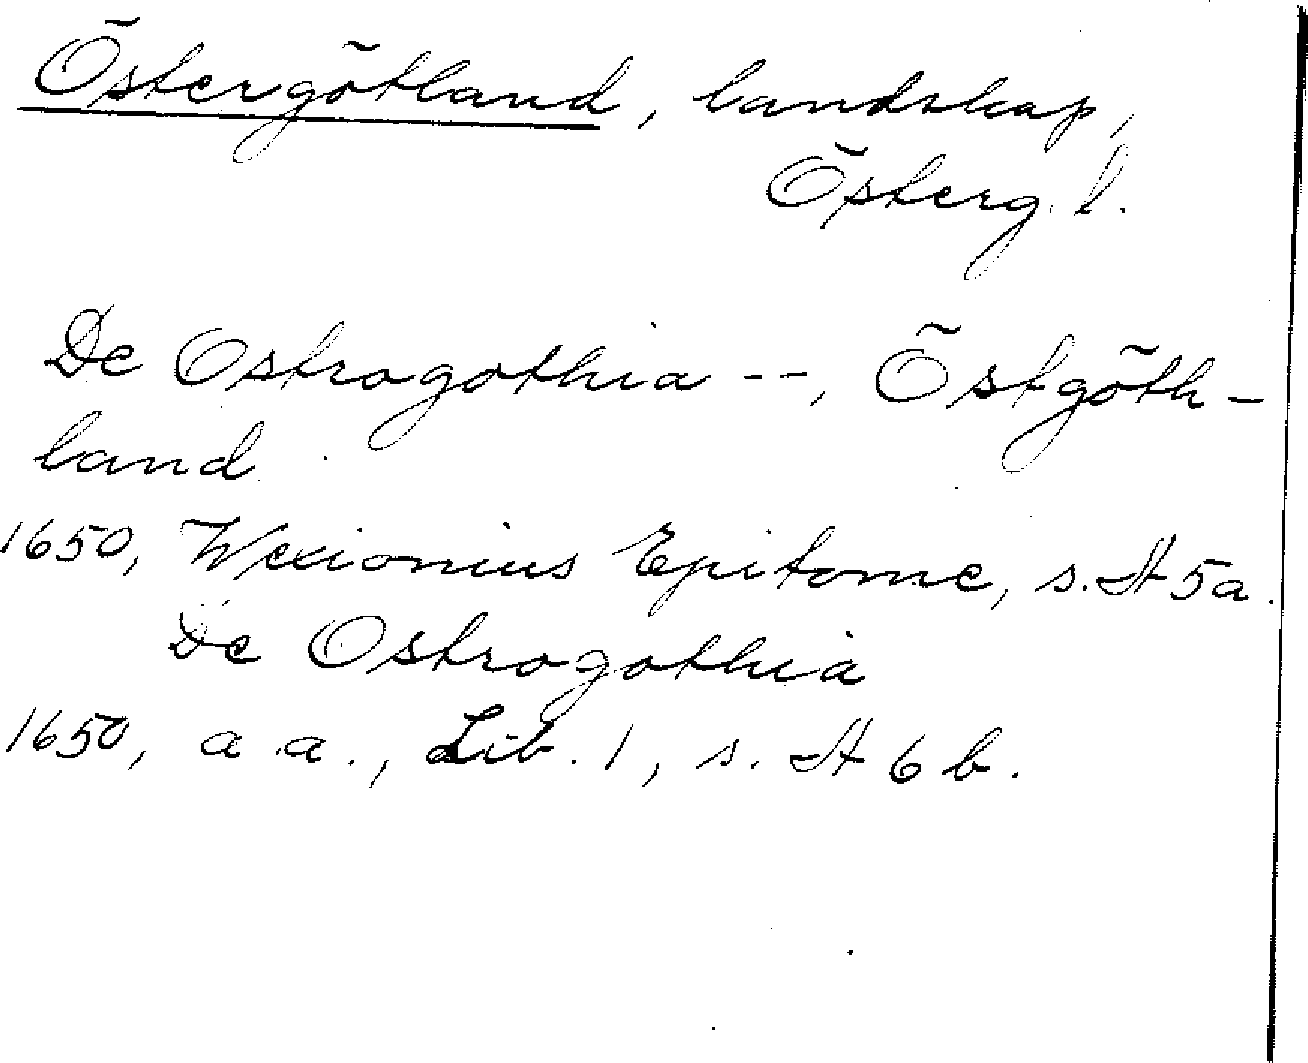 Östergötland, landskap,
Österg. l.
De Ostrogothia --, Östgöth-
land
1650, Wexionius Epitome, s. A 5a.
De Ostrogothia
1650, a.a., Lib. 1, s. A 6 b.